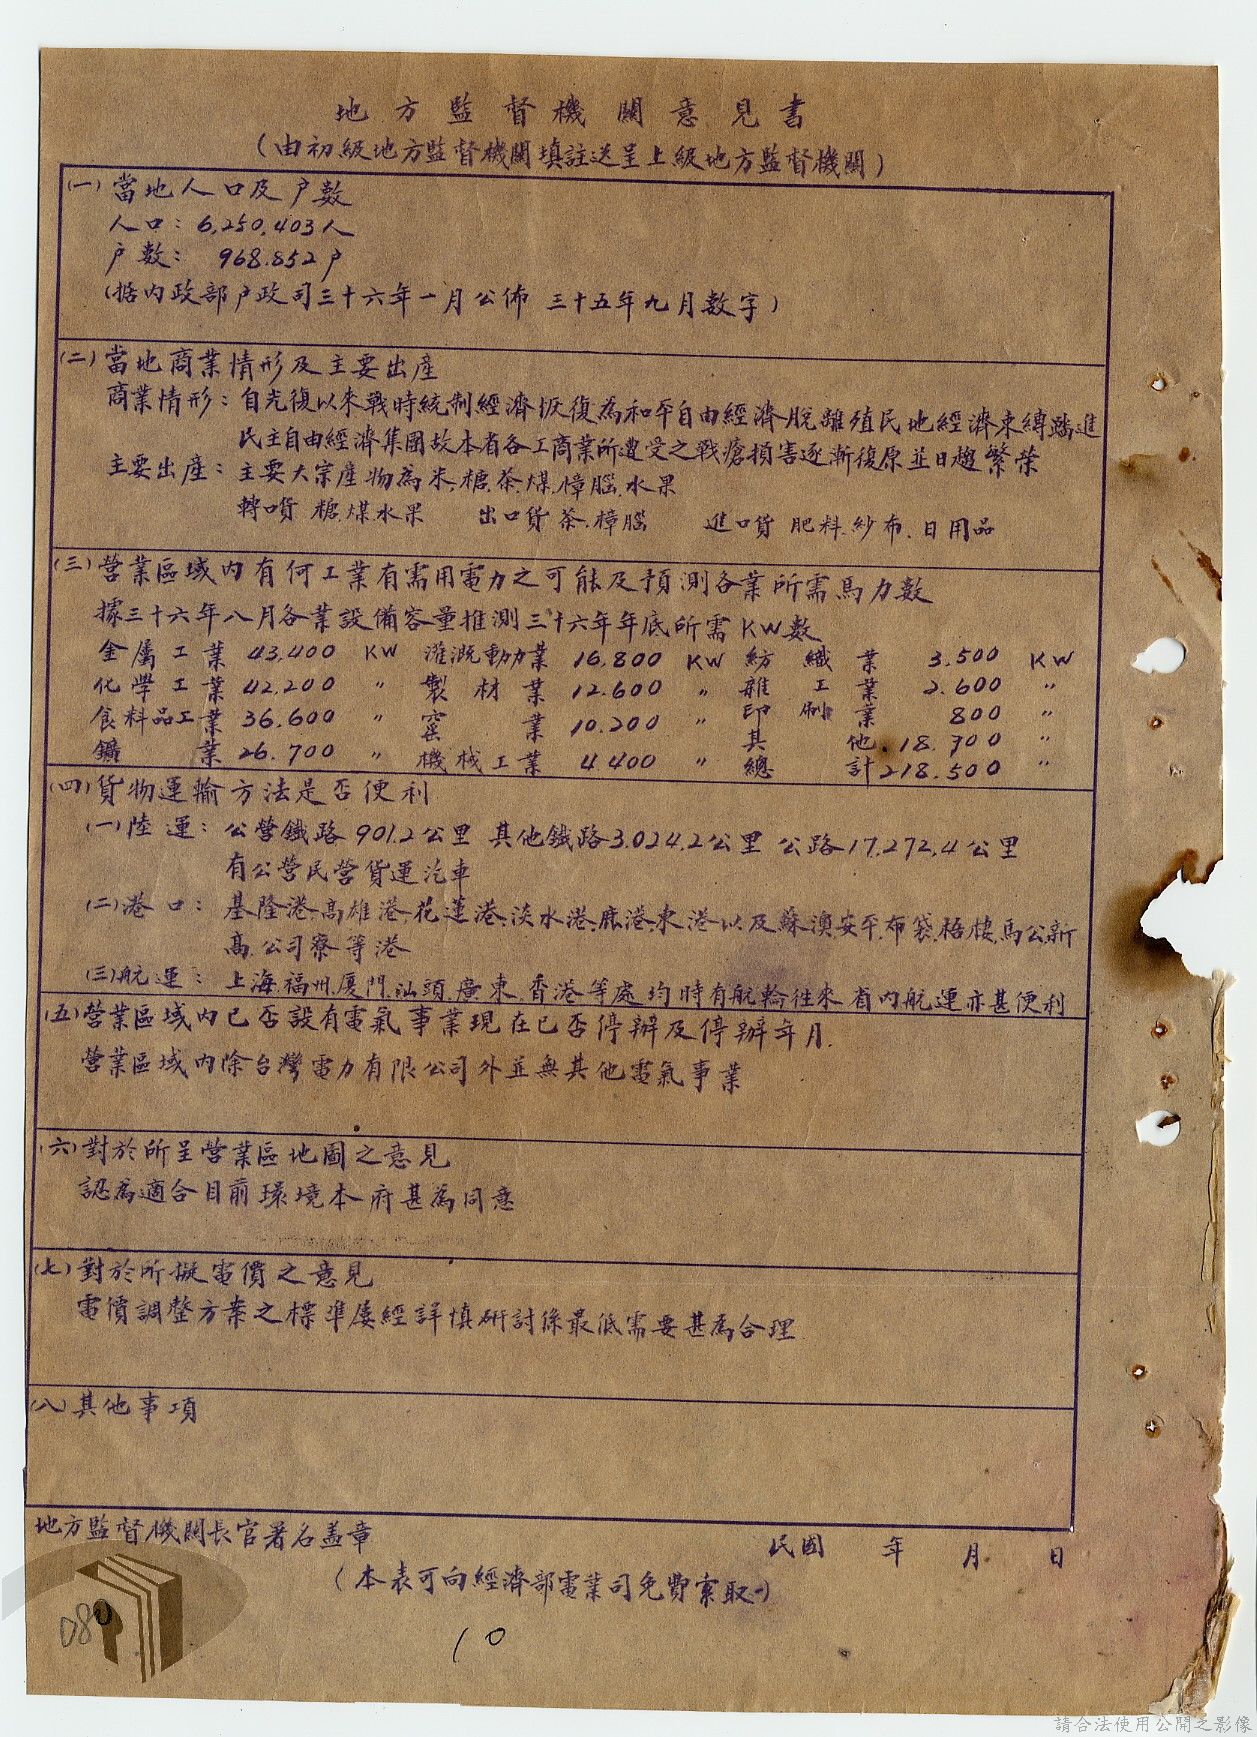 地方監督機關意見書
(由初級地方監督機關填註送呈上級地方監督機關)
(一)當地人口及戶數
人口：6,250,403人
戶數：968.852戶
(據內政部戶政司三十六年一月公佈 三十五年九月數字)
(二)當地商業情形及主要出產
商業情形：自光復以來戰時統制經濟恢復為和平自由經濟脫離殖民地經濟束縛躋進
民主自由經濟集團故本省各工商業所遭受之戰瘡損害逐漸復原並日趨繁榮
主要出產：主要大宗產物為米.糖.茶.煤.樟腦.水果
轉口貨 糖.煤.水果 出口貨 茶.樟腦 進口貨 肥料.紗布.日用品
(三)營業區域內有何工業有需用電力之可能及預測各業所需馬力數
據三十六年八月各業設備容量推測三十六年年底所需KW數
金屬工業 43,400 KW 灌溉動力業 16,800 KW 紡織業 3.500 KW
化學工業 42,200 〃 製材業 12.600 〃 雜工業 2.600 〃
食料品工業 36.600 〃 窯業 10.200 〃 印刷業 800 〃
鑛業 26.700 〃 機械工業 4400 〃 其他 18.700 〃
總計 218.500 〃
(四)貨物運輸方法是否便利
(一)陸運：公營鐵路901.2公里 其他鐵路3.024.2公里 公路17,272.4公里
有公營民營貨運汽車
(二)港口：基隆港.高雄港.花蓮港.淡水港.鹿港.東港以及蘇澳.安平.布袋.梧棲.馬公.新
高.公司寮等港
(三)航運：上海.福州.廈門.汕頭.廣東.香港等處均時有航輪往來省內航運亦甚便利
(五)營業區域內已否設有電氣事業現在已否停辦及停辦年月.
營業區域內除台灣電力有限公司外並無其他電氣事業
(六)對於所呈營業區地圖之意見
認為適合目前環境本府甚為同意
(七)對於所擬電價之意見
電價調整方案之標準屢經詳慎研討係最低需要甚為合理
(八)其他事項
地方監督機關長官署名蓋章
民國 年 月 日
(本表可向經濟部電業司免費索取)
080
10
請合法使用公開之影像